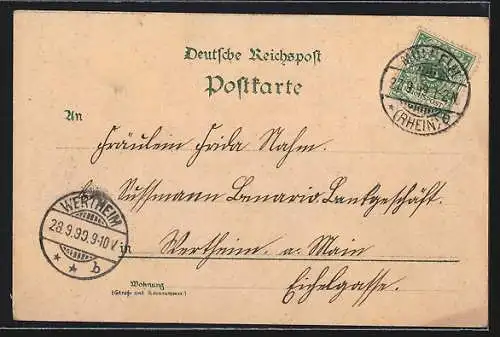 Deutsche Reichspost
Postkarte
MÜLHEIM
9.99
(RHEIN)
An
Fräulein Frida Nahm.
Sussmann Benario Bankgeschäft.
WERTHEIM
28.9.99. 9-10 V.
* * b
in Wertheim a. Main
Eichelgasse.
Wohnung
(Straße und Hausnummer)